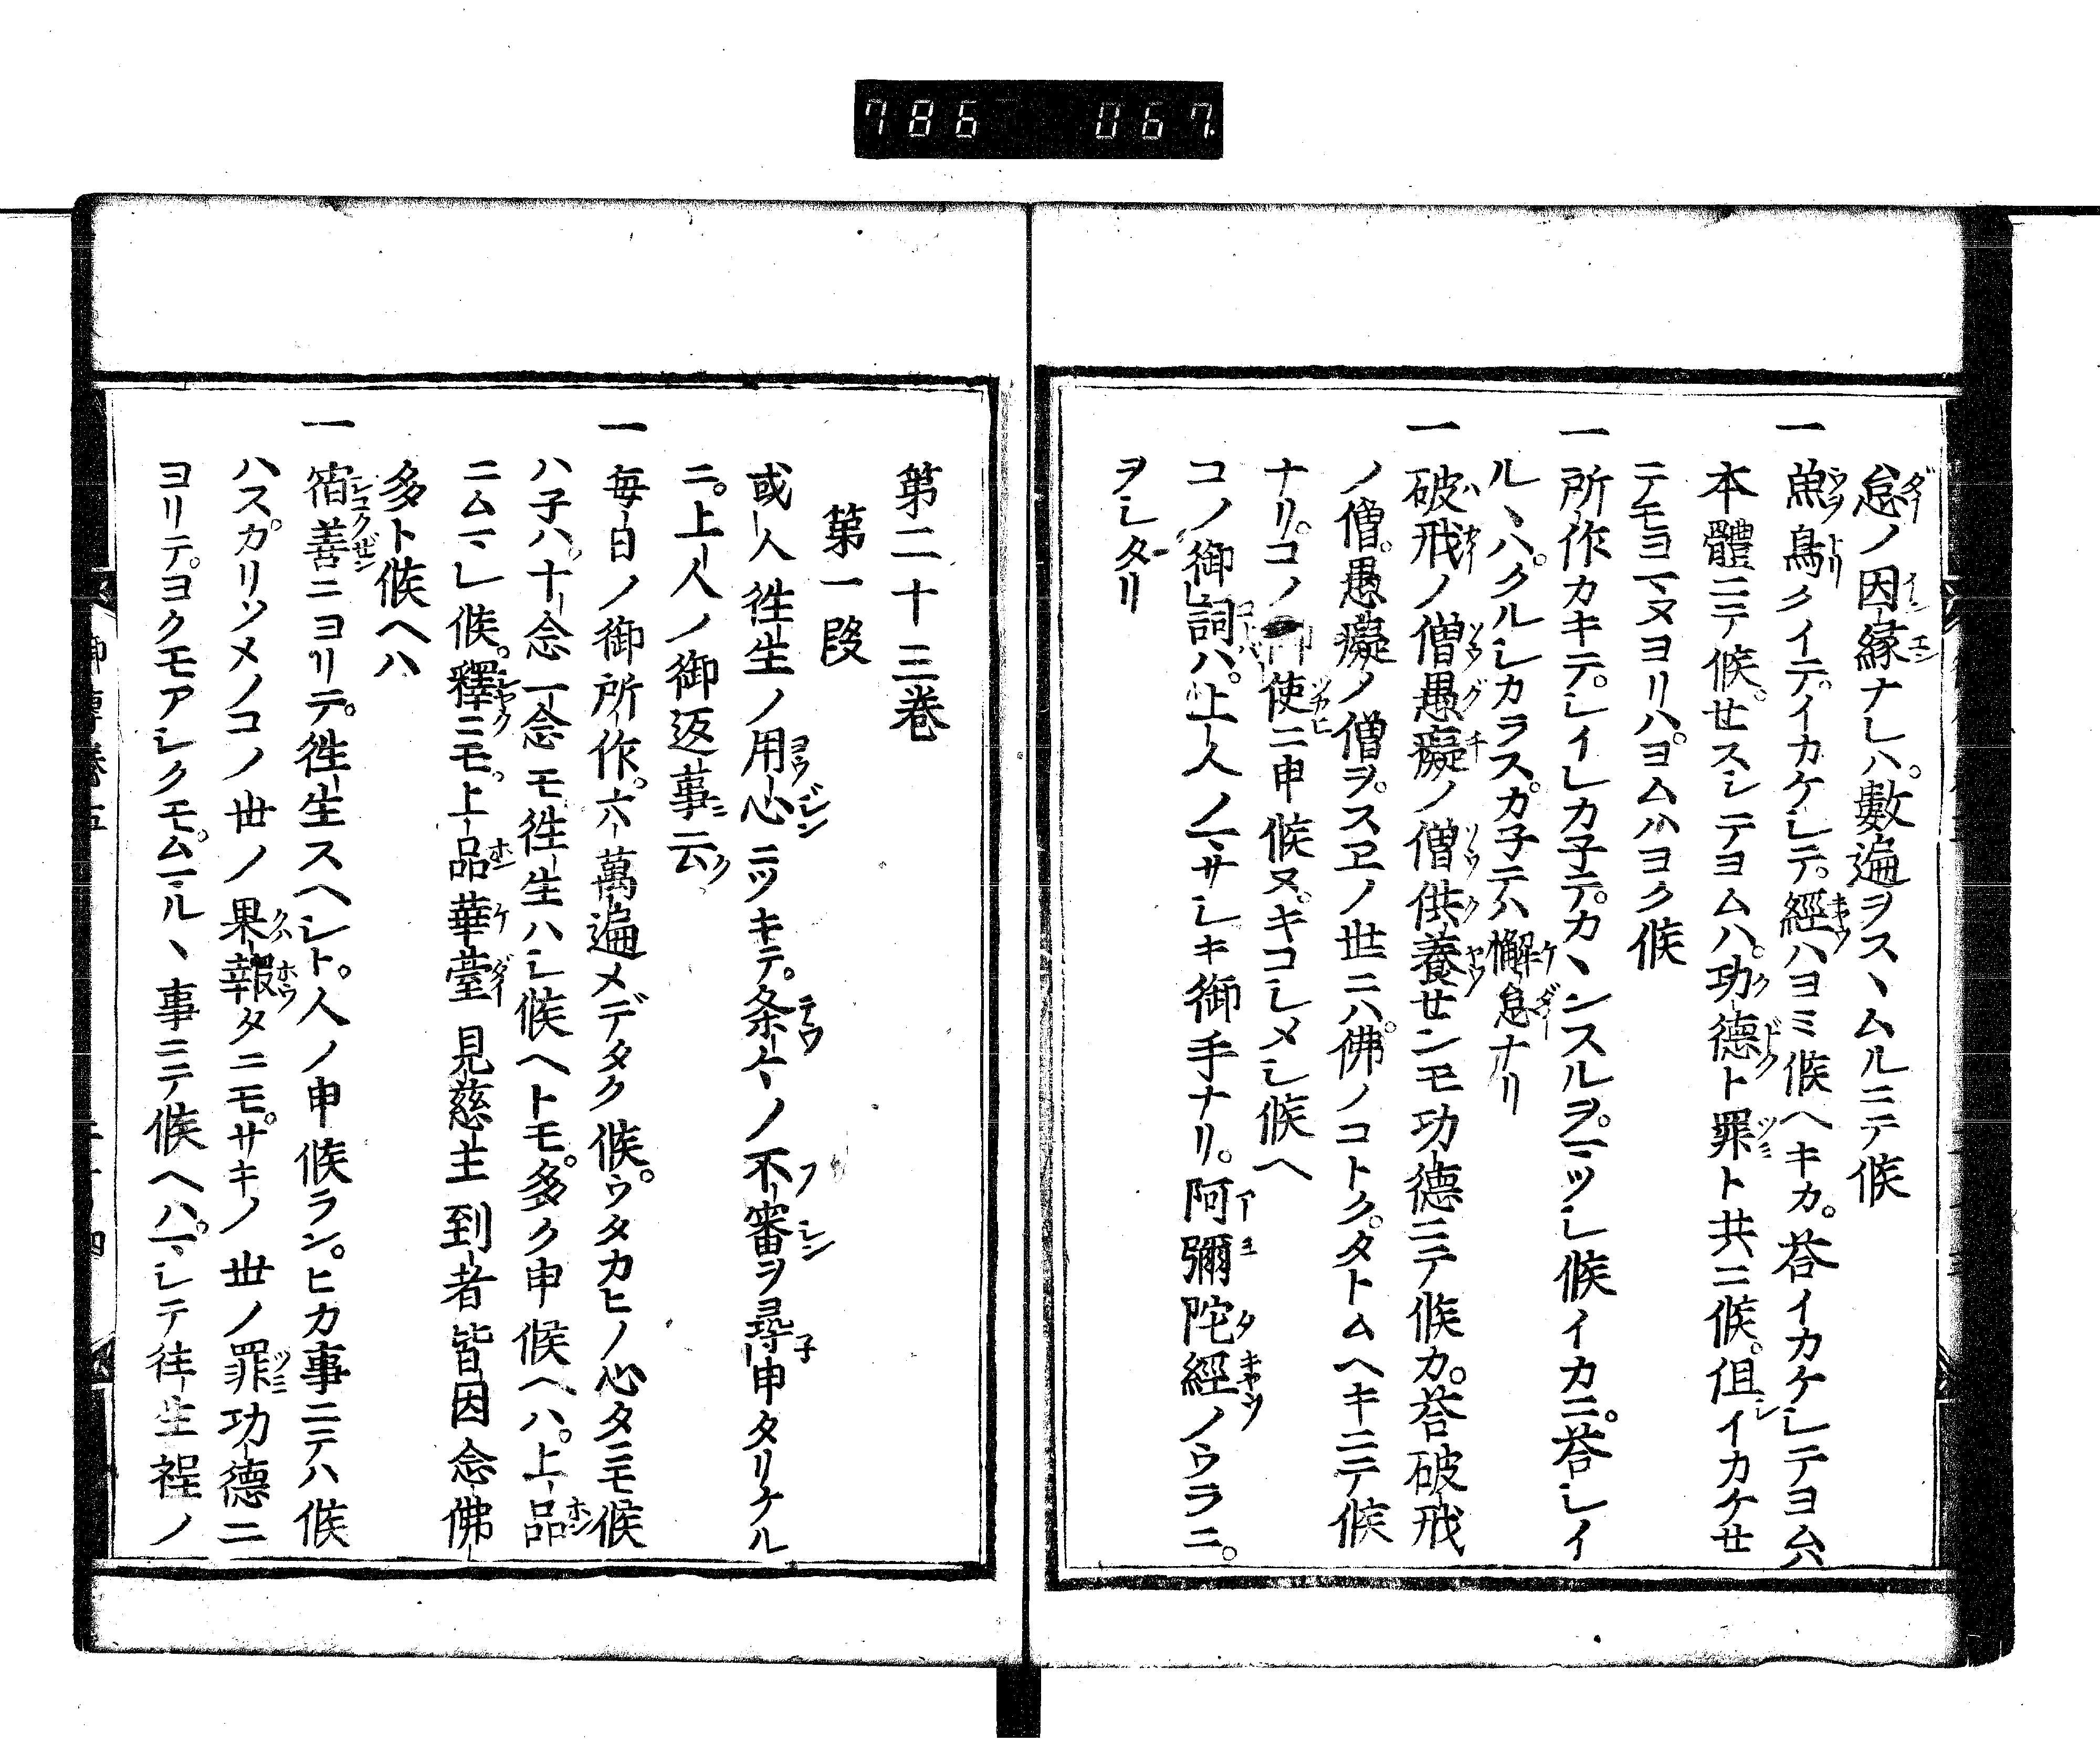 786 067
怠ノ因縁ナレハ。數遍ヲスヽムルニテ候
一 魚鳥クイテ。イカケレテ。經ハヨミ候ヘキカ。荅イカケレテヨムハ
本體ニテ候。せスレテヨムハ。功德ト罪ト共ニ候。但イカケせ
ニテモヨマヌヨリハ。ヨムハヨク候
一 所作カキテ。レイレカ子テ。カヽンスルヲ。マツレ候イカニ。荅レイ
ルヽハ。クルレカラス。カ子テハ懈怠ナリ
一 破戒ノ僧愚癡ノ僧供養せンモ功德ニテ候カ。荅破戒
ノ僧。愚癡ノ僧ヲ。スヱノ世ニハ。佛ノコトク。タトムヘキニテ候
ナリ。コノ 使ニ申候ヌ。キコレメレ候ヘ
コノ御詞ハ。上人ノマサレキ御手ナリ。阿彌陀經ノウラニ。
ヲレタリ
第二十三巻
第一段
或人徃生ノ用心ニツキテ。条々ノ不審ヲ尋申タリケル
ニ。上人ノ御返事云
一 毎日ノ御所作。六萬遍メデタク候。ウタカヒノ心タニモ候
ハ子ハ。十念一念モ徃生ハレ候ヘトモ。多ク申候ヘハ。上品
ニムマレ候。釋ニモ。上品華臺見慈主到者皆因念佛
多ト候ヘハ
一 宿善ニヨリテ。徃生スヘレト。人ノ申候ラン。ヒカ事ニテハ候
ハス。カリソメノコノ世ノ果報タニモ。サキノ世ノ罪功德ニ
ヨリテ。ヨクモアレクモ。ムマルヽ事ニテ候ヘハ。マレテ徃生程ノ